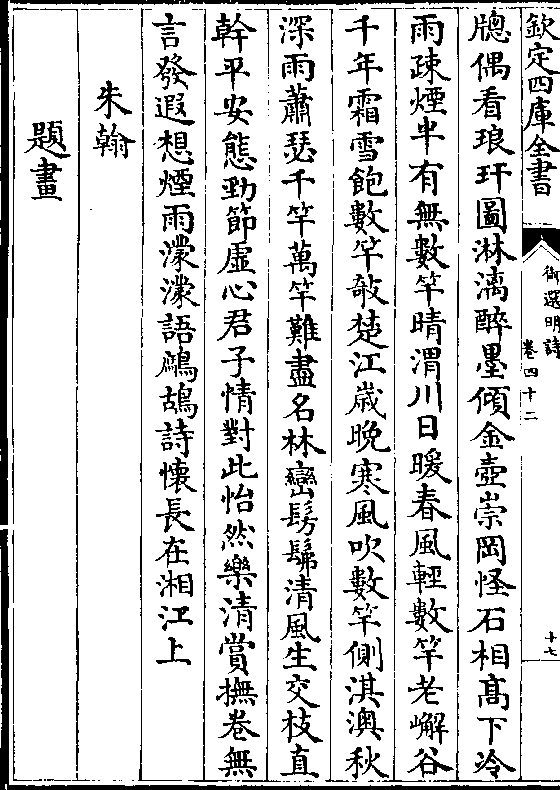 欽定四庫全書
御選明詩
卷四十二
十七
牕偶看琅玕圖淋漓醉墨傾金壺崇岡怪石相高下冷
雨疎煙半有無數竿晴渭川日暖春風輕數竿老嶰谷
千年霜雪飽數竿敧楚江歲晚寒風吹數竿側淇澳秋
深雨蕭瑟千竿萬竿難盡名林巒髣髴清風生交枝直
幹平安態勁節虛心君子情對此怡然樂清賞撫卷無
言發遐想煙雨濛濛語鷓鴣詩懷長在湘江上
朱翰
題畫